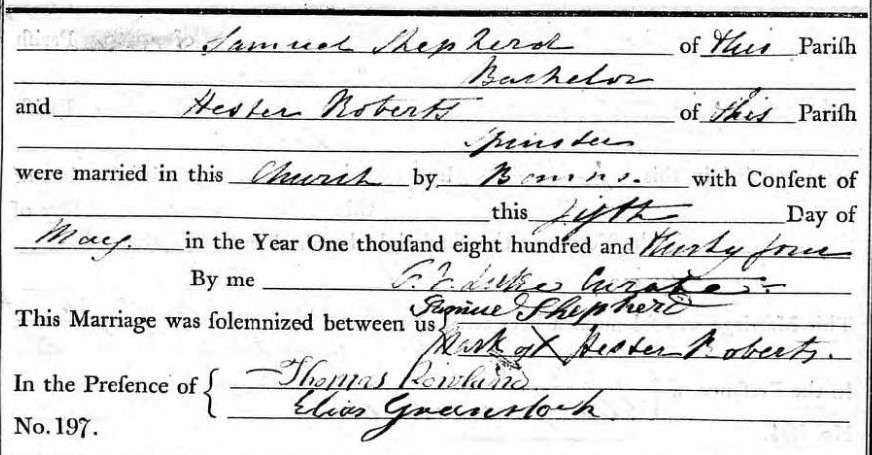 Samuel Shepherd of this Pariſh
Bachelor
and Hester Roberts of this Pariſh
Spinster
were married in this Church by Banns. with Conſent of
this fifth Day of
May. in the Year One thouſand eight hundred and thirty four
By me Luke Curate
This Marriage was ſolemnized between us { Samuel Shepherd
Mark of X Hester Roberts.
In the Preſence of { Thomas Rowland
Elias Greenslock
No. 197.